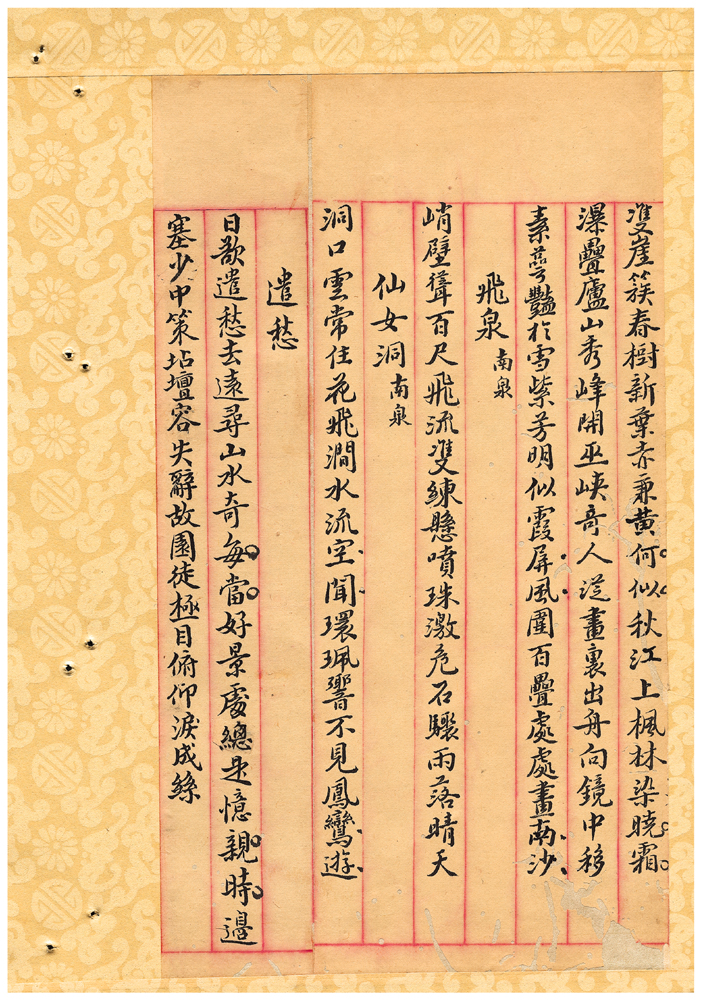 雙崖簇春樹新葉赤兼黃何似秋江上楓林染曉霜
瀑疊廬山秀峰開巫峽奇人從畫裏出舟向鏡中移
素萼豔於雪紫芳明似霞屏風圍百疊處處畫南沙
飛泉南泉
峭壁聳百尺飛流雙練懸噴珠激危石驟雨落晴天
仙女洞南泉
洞口雲常住花飛澗水流空聞環珮響不見鳳鸞遊
遣愁
日欲遣愁去遠尋山水奇每當好景處總是憶親時邊
塞少中策坫壇容失辭故園徒極目俯仰淚成絲